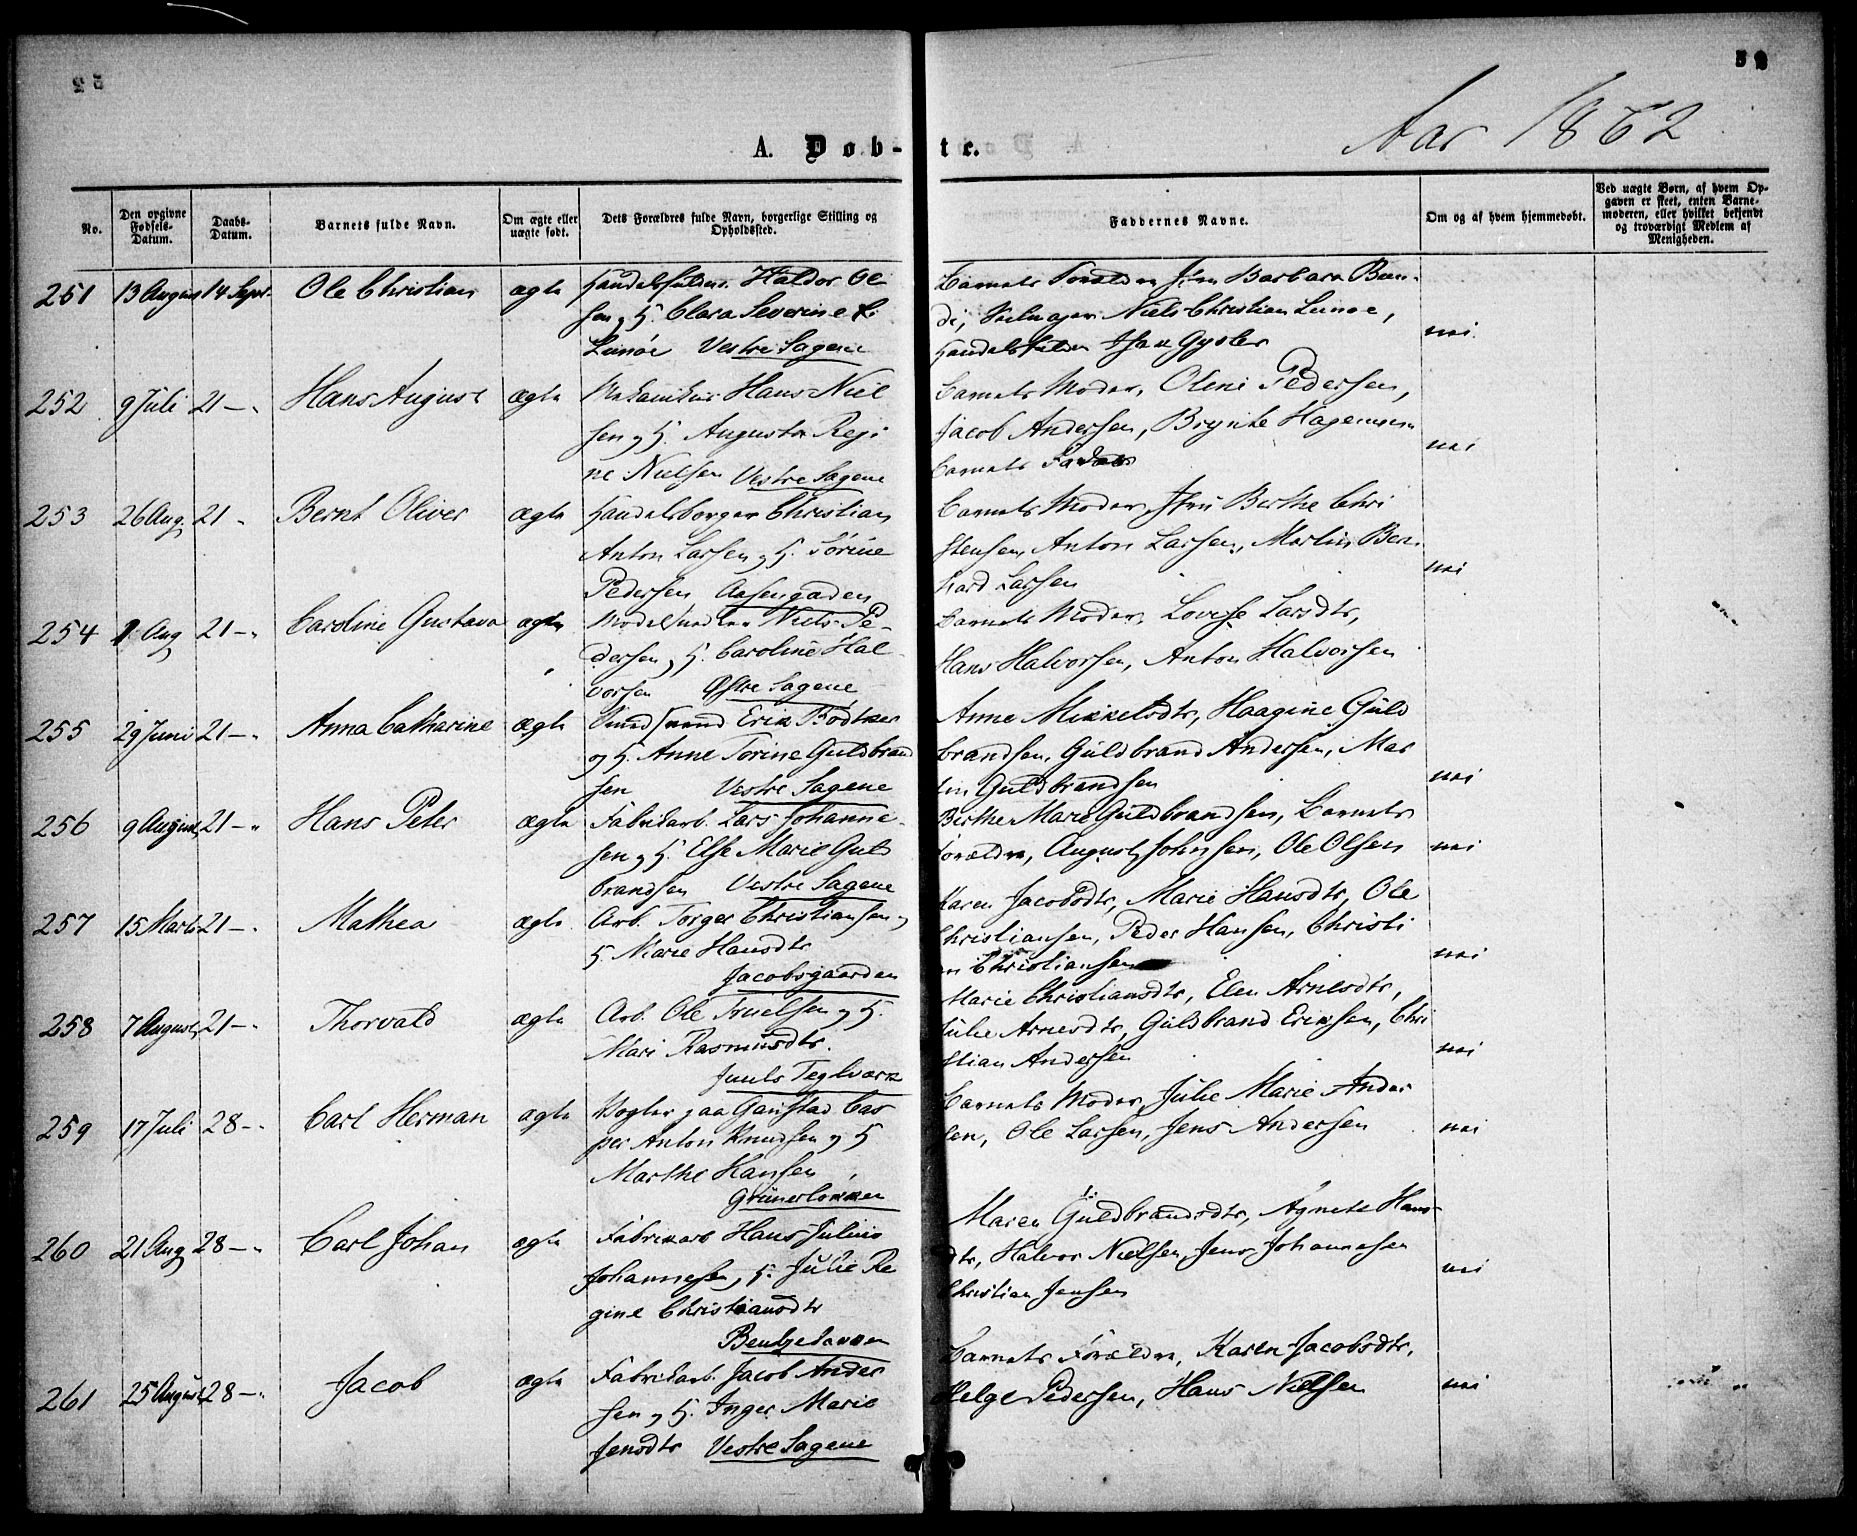 52
Aar 1862
A. Døb-
te.
No.
Den opgivne Fødsels-Datum.
Daabs-Datum.
Barnets fulde Navn.
Om ægte eller uægte født.
Dets Forældres fulde Navn, borgerlige Stilling og Opholdssted.
Faddernes Navne.
Om og af hvem hjemmedøbt.
Ved uægte Børn, af hvem Opgaven er skeet, enten Barnemoderen, eller hvilket bekjendt og troværdigt Medlem af Menigheden.
251 13 August 14 Sept. Ole Christian ægte
Haldor Ol
sen og H. Clara Severine
Lunøe Vestre Sagene
Barnets Forældre, Barbara Bun-
de, Niels Christian Lunøe,
Gysler
nei
252 9 Juli 21 - Hans August ægte
Mekanikus Hans Niel
sen og H. Augusta Regi
ne Nielsen Vestre Sagene
Barnets Moder, Oline Pedersen,
Jacob Andersen, Hagemann
Barnets Fader
nei
253 26 Aug 21 - Bernt Oliver ægte
Handelsborger Christian
Anton Larsen og H. Sørine
Pedersen Aasengaden
Barnets Moder, Berthe Chri
stensen, Anton Larsen, Martin Bern
hard Larsen
nei
254 Aug 21 - Caroline Gustava ægte
Modelsnedker Niels Pe-
dersen og H. Caroline Hal
vorsen Østre Sagene
Barnets Moder, Lovise Larsdtr,
Hans Halvorsen, Anton Halvorsen
255 29 Juni 21 - Anna Catharine ægte
Erik Bødtker
og H. Anne Torine Guldbrand
sen Vestre Sagene
Anne Mikkelsdtr, Haagine Guld
brandsen, Guldbrand Andersen, Mar
tin Guldbrandsen
nei
256 9 August 21 - Hans Peter ægte
Fabrikarb. Lars Johanne-
sen og H. Else Marie Guld
brandsen Vestre Sagene
Berthe Marie Guldbrandsen, Barnets
Forældre, August Johnsen, Ole Olsen
nei
257 15 Marts 21 - Mathea ægte
Arb. Torger Christiansen og
H. Marie Hansdtr
Jacobsgaarden
Karen Jacobsdtr, Marie Hansdtr, Ole
Christiansen, Peder Hansen, Christi
an Christiansen
nei
258 7 August 21 - Thorvald ægte
Arb. Ole Truelsen og H.
Mari Rasmusdtr.
Juuls Teglværk
Marie Christiansdtr, Elen Arnesdtr,
Julie Arnesdtr, Guldbrand Eriksen, Chri
stian Andersen
nei
259 17 Juli 28 - Carl Herman ægte
Vogter paa Gaustad Cas
per Anton Knudsen og H
Marthe Hansen
Grünerløkken
Barnets Moder, Julie Marie Ander
sen, Ole Larsen, Jens Andersen
nei
260 21 Aug 28 - Carl Johan ægte
Fabrikarb Hans Julius
Johannesen og H. Julie Re
gine Christiansdtr
Maren Guldbrandsdtr, Agnete Hans-
dtr, Halvor Nielsen, Jens Johannesen
Christian Jensen
nei
261 25 August 28 - Jacob ægte
Fabrikarb. Jacob Ander
sen og H. Inger Marie
Jensdtr Vestre Sagene
Barnets Forældre, Karen Jacobsdtr,
Helge Pedersen, Hans Nielsen
nei